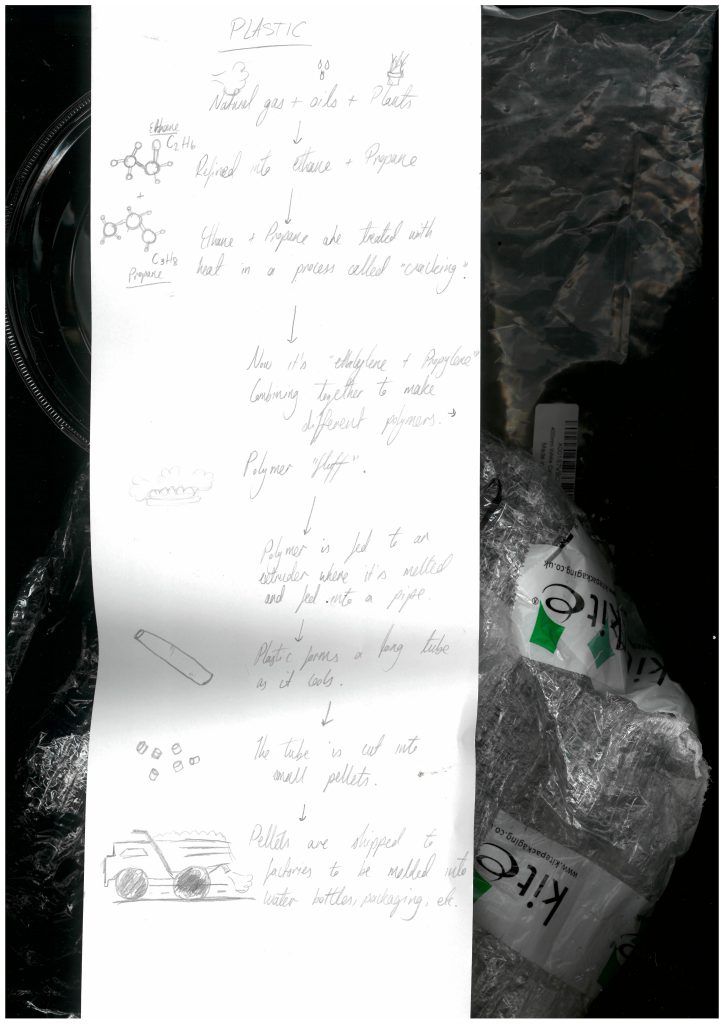 PLASTIC
Natural gas + oils + Plants
Ethane
C2H6
Refined into Ethane + Propane
+
Ethane + Propane are treated with
heat in a process called "cracking".
C3H8
Propane
Now it's "ethylene + Propylene"
Combining together to make
different polymers.
Polymer "fluff".
Polymer is fed to an
extruder where it's melted
and fed into a pipe.
Plastic forms a long tube
as it cools.
The tube is cut into
small pellets.
Pellets are shipped to
factories to be molded into
water bottles, packaging, etc.
www.kitepackaging.co.uk
kite
kite
www.kitepackaging.co
kite